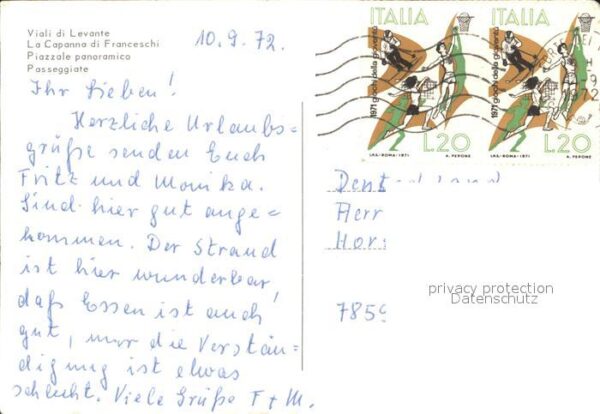 Viali di Levante
La Capanna di Franceschi
Piazzale panoramico
Passeggiate
10.9.72.
Ihr Lieben!
Herzliche Urlaubs=
grüße senden Euch
Fritz und Monika.
Sind hier gut ange=
kommen. Der Strand
ist hier wunderbar,
daß Essen ist auch
gut, nur die Verstän=
digung ist etwas
schlecht. Viele Grüße F + M.
ITALIA
1971 giochi della gioventù
L.20
I.P.S.-ROMA-1971
R. PERONE
ITALIA
1971 giochi della gioventù
L.20
I.P.S.-ROMA-1971
R. PERONE
Deutschland
Herr
Hor
privacy protection
Datenschutz
785